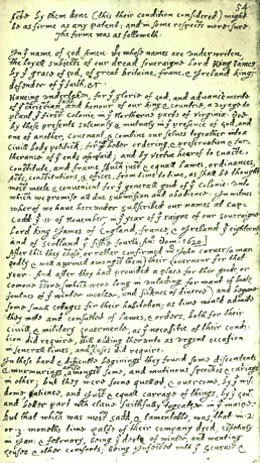 54
by them done (this their condition considered) might
be as firme as any patent; and in some respects more sure.
The forme was as followeth.
In yͤ name of god Amen. we whose names are underwriten,
the loyall subjects of our dread soveraigne Lord King James
by yͤ grace of god, of great Britaine, franc, & Ireland king,
defender of yͤ faith, &c
Haveing undertaken, for yͤ glorie of god, and advancemente
of yͤ christian faith and honour of our king & countrie, a voyage to
plant yͤ first colonie in yͤ Northerne parts of Virginia. Doe
by these presents solemnly & mutualy in yͤ presence of god, and
one of another, covenant, & combine our selves togeather into a
Civill body politick; for our better ordering, & preservation & fur-
therance of yͤ ends aforesaid; and by vertue hearof to enacte,
constitute, and frame such just & equall Lawes, ordinances,
Acts, constitutions, & offices, from time to time, as shall be thought
most meete & convenient for yͤ generall good of yͤ colonie: unto
which we promise all due submission and obedience. In witnes
wherof we have hereunder subscribed our names at Cap-
Codd yͤ 11 of November, in yͤ year of yͤ raigne of our soveraigne
Lord king James of England, france, & Ireland yͤ eighteenth
and of Scotland yͤ fiftie fourth. Ano Dom 1620.
After this they chose, or rather confirmed mr John Carver (a man
godly & well approved amongst them) their Governour for that
year. And after they had provided a place for their goods, or
comone store, (which were long in unlading for want of boats,
foulnes of yͤ winter weather, and sicknes of diverce) and begune
some small cottages for their habitation; as time would admitte
they mette and consulted of Lawes, & orders, both for their
civill, & military Govermente, as yͤ necessitie of their condi-
tion did require, still adding therunto as urgent occasion
in severall times, and cases did require.
In these hard & difficulte beginings they found some discontents
& murmurings arise amongst some, and mutinous speeches & carriags
in other; but they were soone quelled, & overcome, by yͤ wis-
dome, patience, and just & equall carrage of things, by yͤ gov
and better part which clave faithfully togeather in yͤ maine.
But that which was most sadd, & lamentable, was, that in 2.
or 3. moneths time halfe of their company dyed, espetialy
in Jan: & february, being yͤ depth of winter, and wanting
houses & other comforts; being infected with yͤ scurvie &